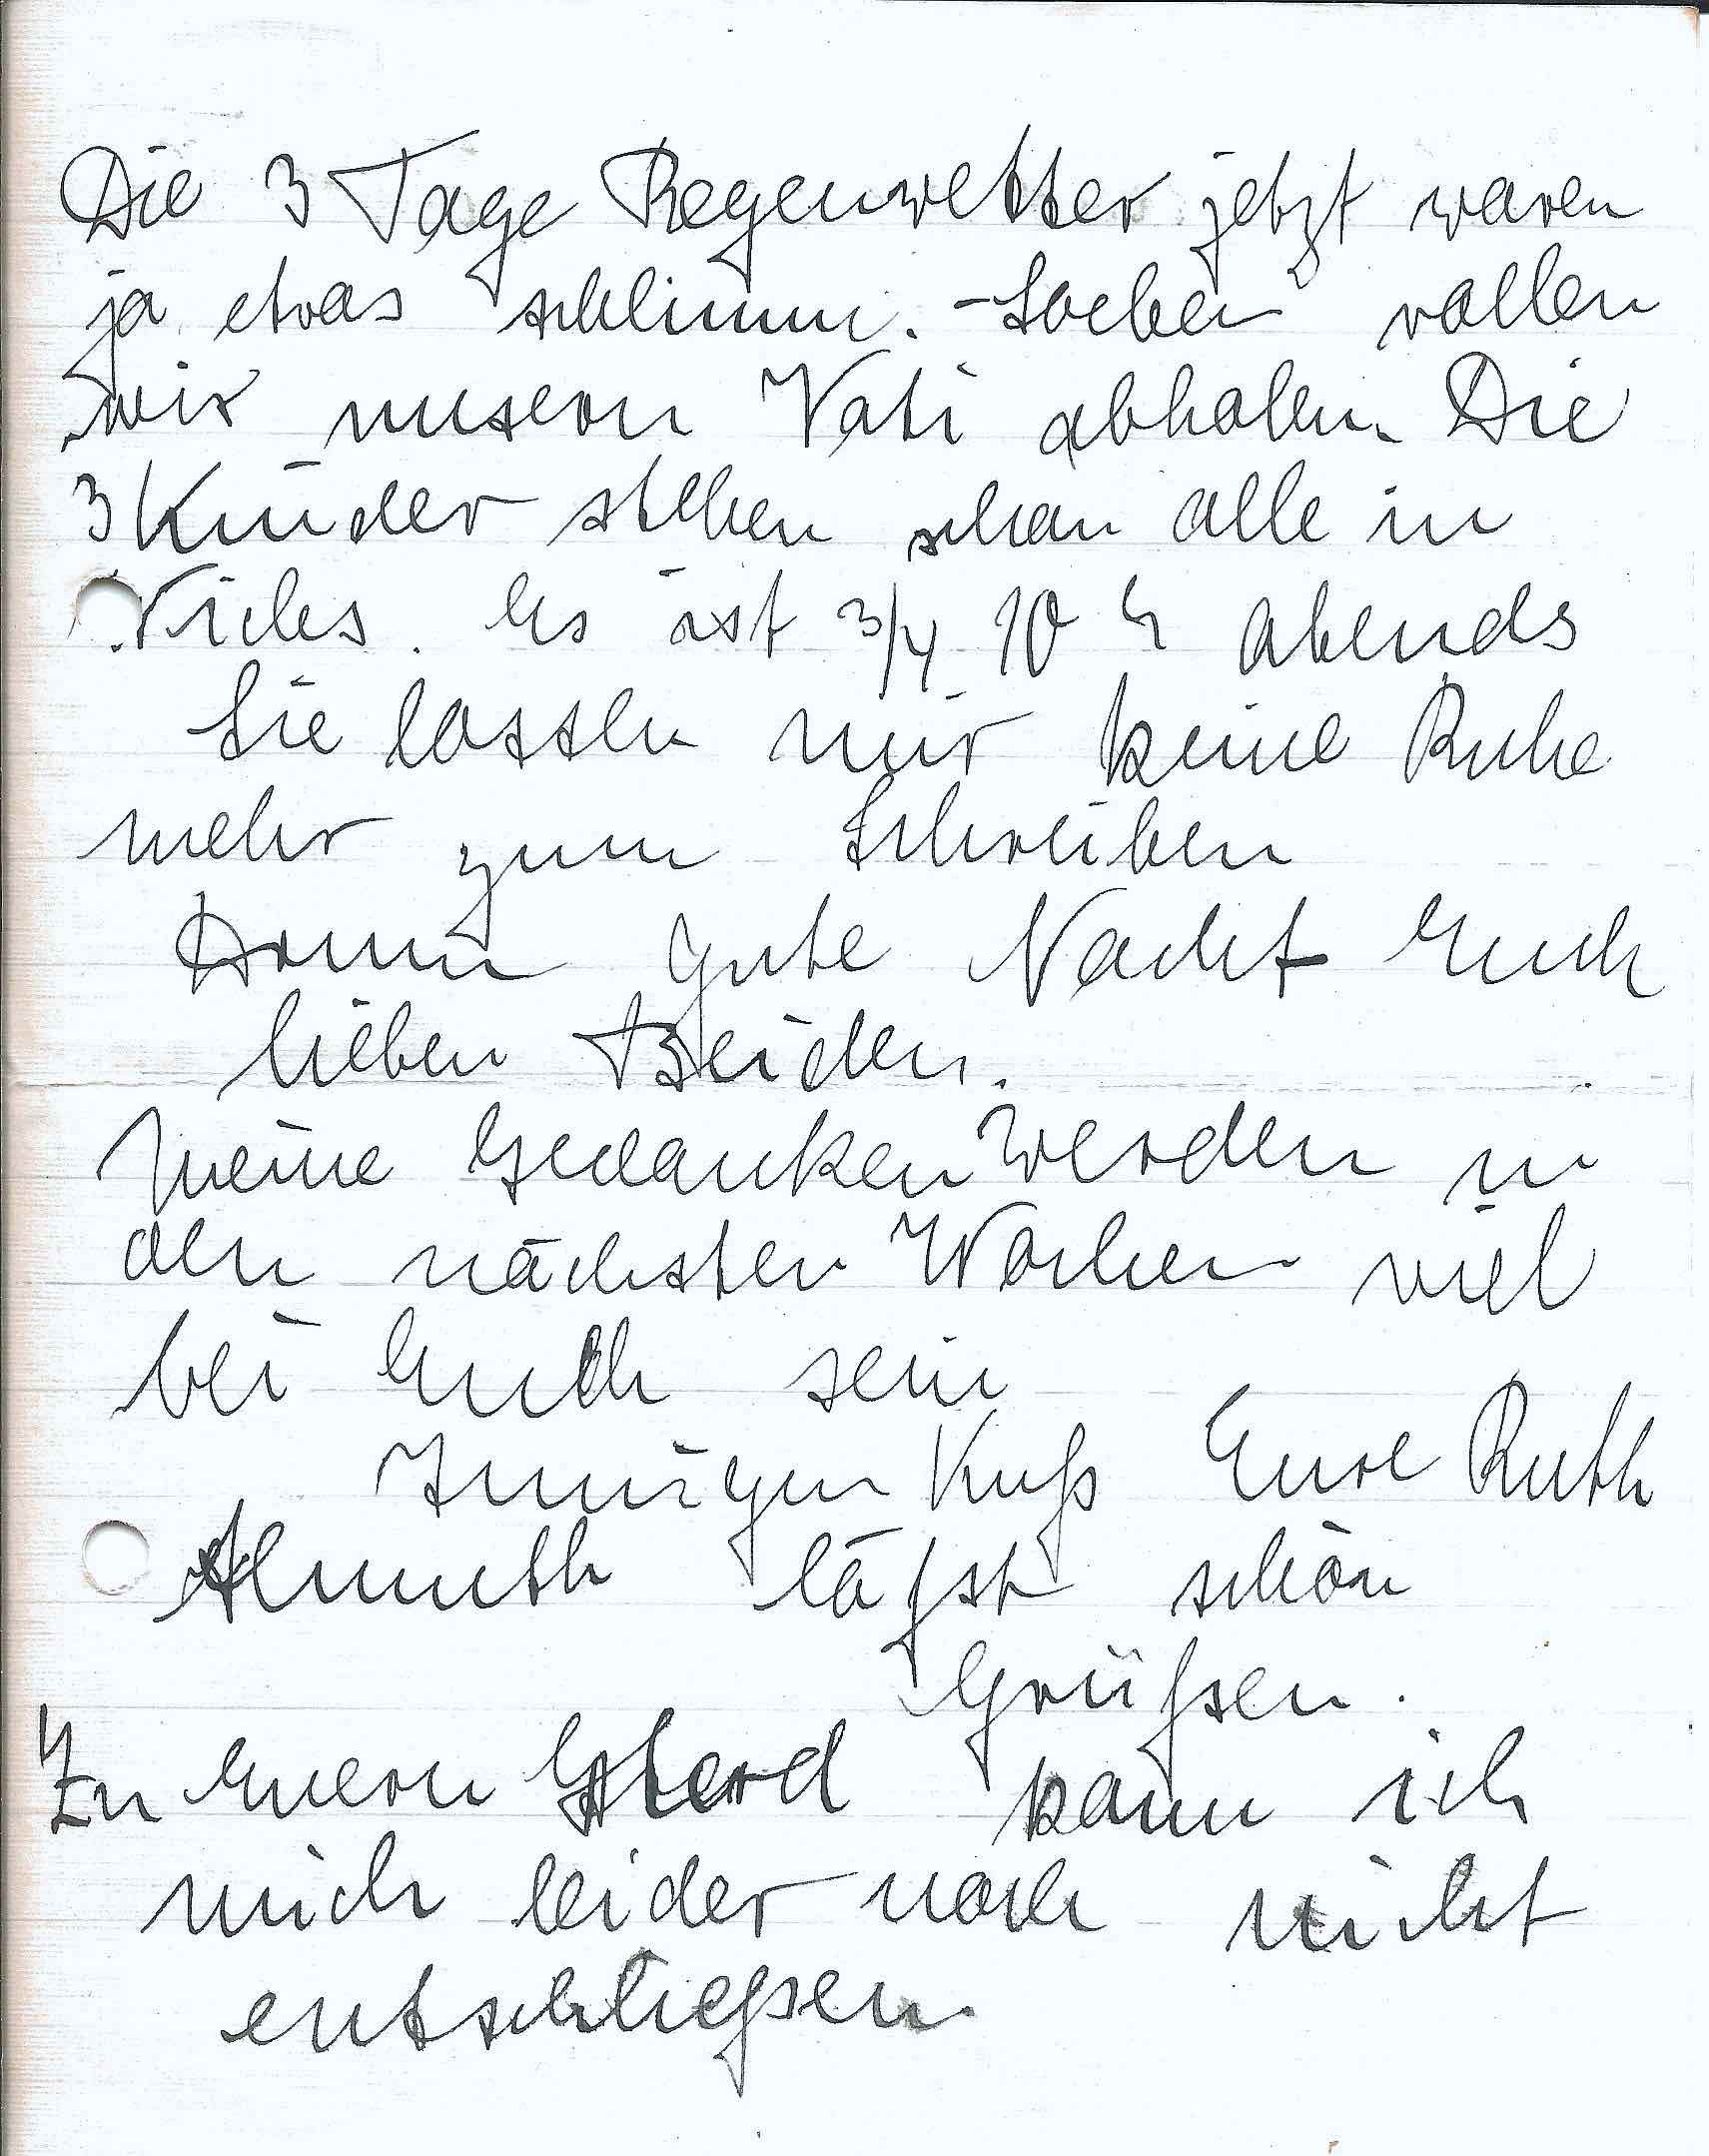 Die 3 Tage Regenwetter jetzt waren
ja etwas schlimm. - Soeben wollen
wir unsern Vati abholen. Die
3 Kinder stehen schon alle in
Es ist 3/4 10 h abends
Sie lassen mir keine Ruhe
mehr zum Schreiben
Drum gute Nacht Euch
lieben Beiden.
Meine Gedanken werden in
den nächsten Wochen viel
bei Euch sein
Innigen Kuß Eure Ruth
Almuth läßt schön
Grüßen.
Zu Euern kann ich
mich leider noch nicht
entschließen